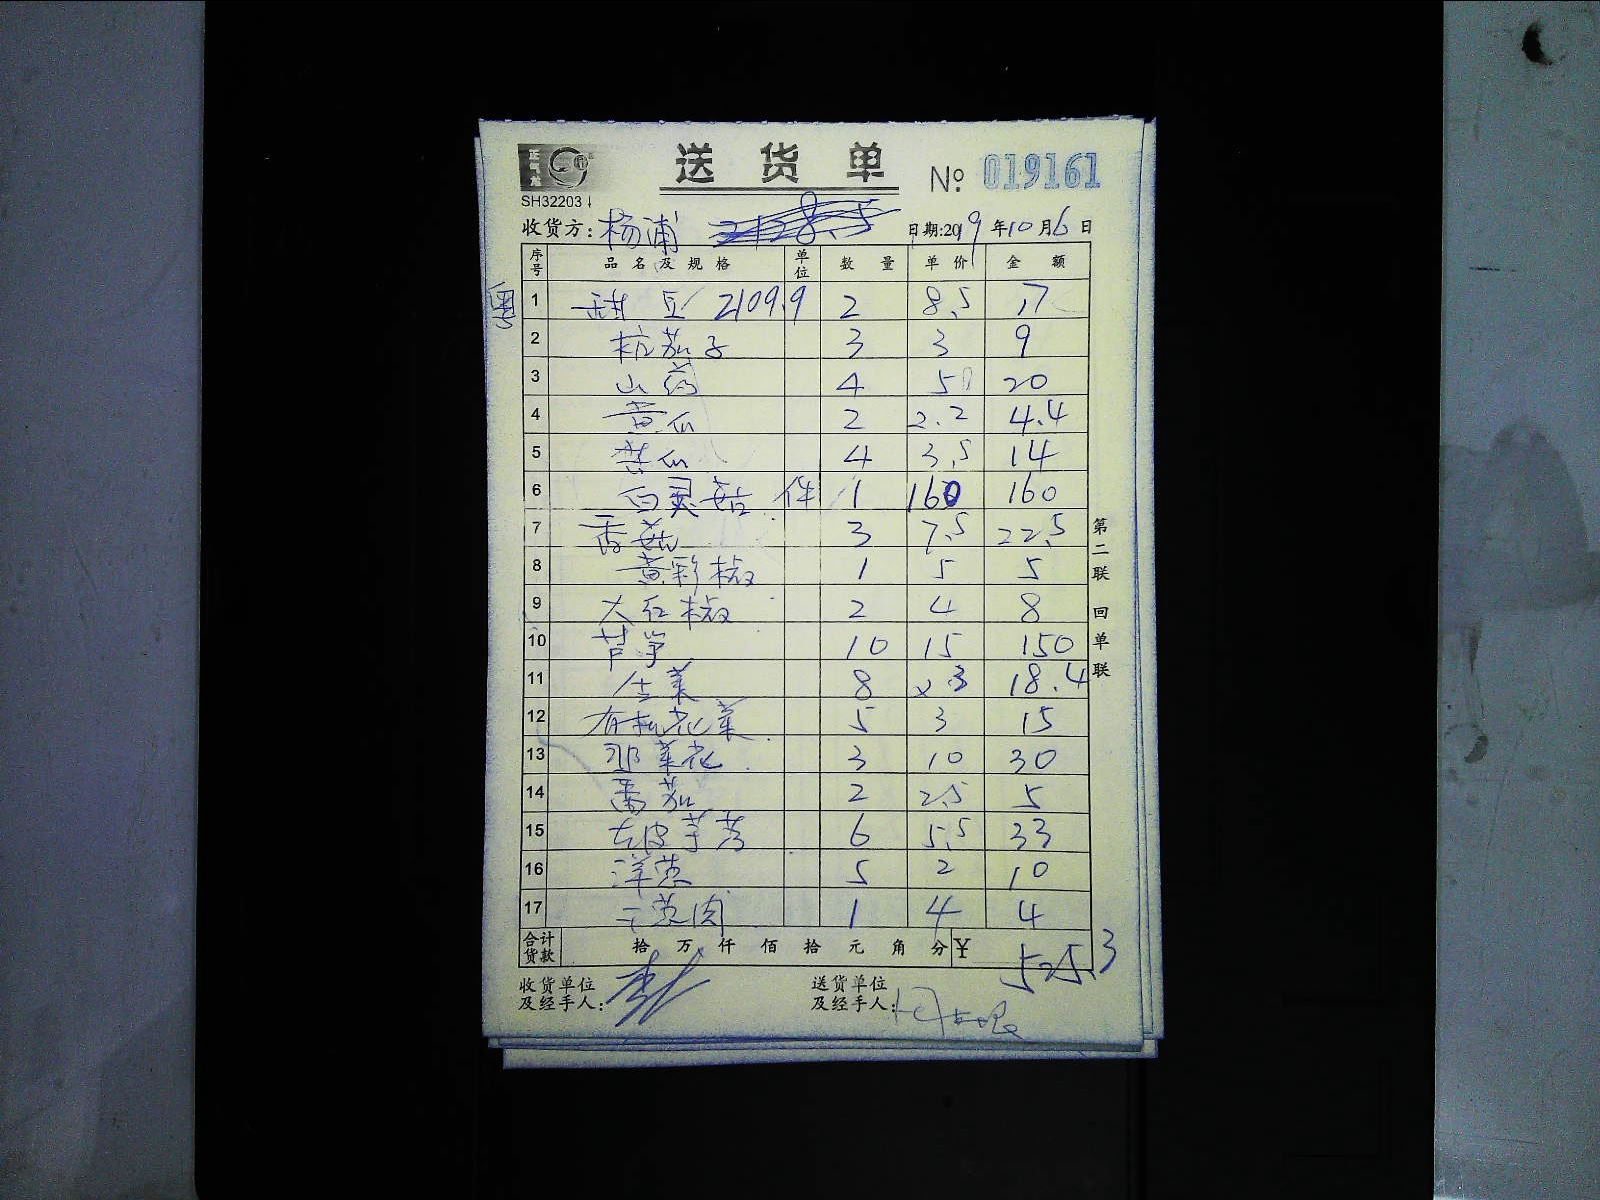 送货单 № 019161
SH32203
收货方：杨浦 日期:2019年10月6日
序号 品名及规格 单位 数量 单价 金额
1 甜豆 2109.9 2 8.5 17
2 杭茄子 3 3 9
3 山药 4 5 20
4 黄瓜 2 2.2 4.4
5 4 3.5 14
6 白灵菇 件 1 160 160
7 香菇 3 7.5 22.5
8 黄彩椒 1 5 5
9 大红椒 2 4 8
10 芦笋 10 15 150
11 生菜 8 2.3 18.4
12 有机花菜 5 3 15
13 菜花 3 10 30
14 番茄 2 2.5 5
15 皮芋艿 6 5.5 33
16 洋葱 5 2 10
17 1 4 4
合计货款 拾万仟佰拾元角分 ¥ 525.3
收货单位及经手人：
送货单位及经手人：
第二联 回单联